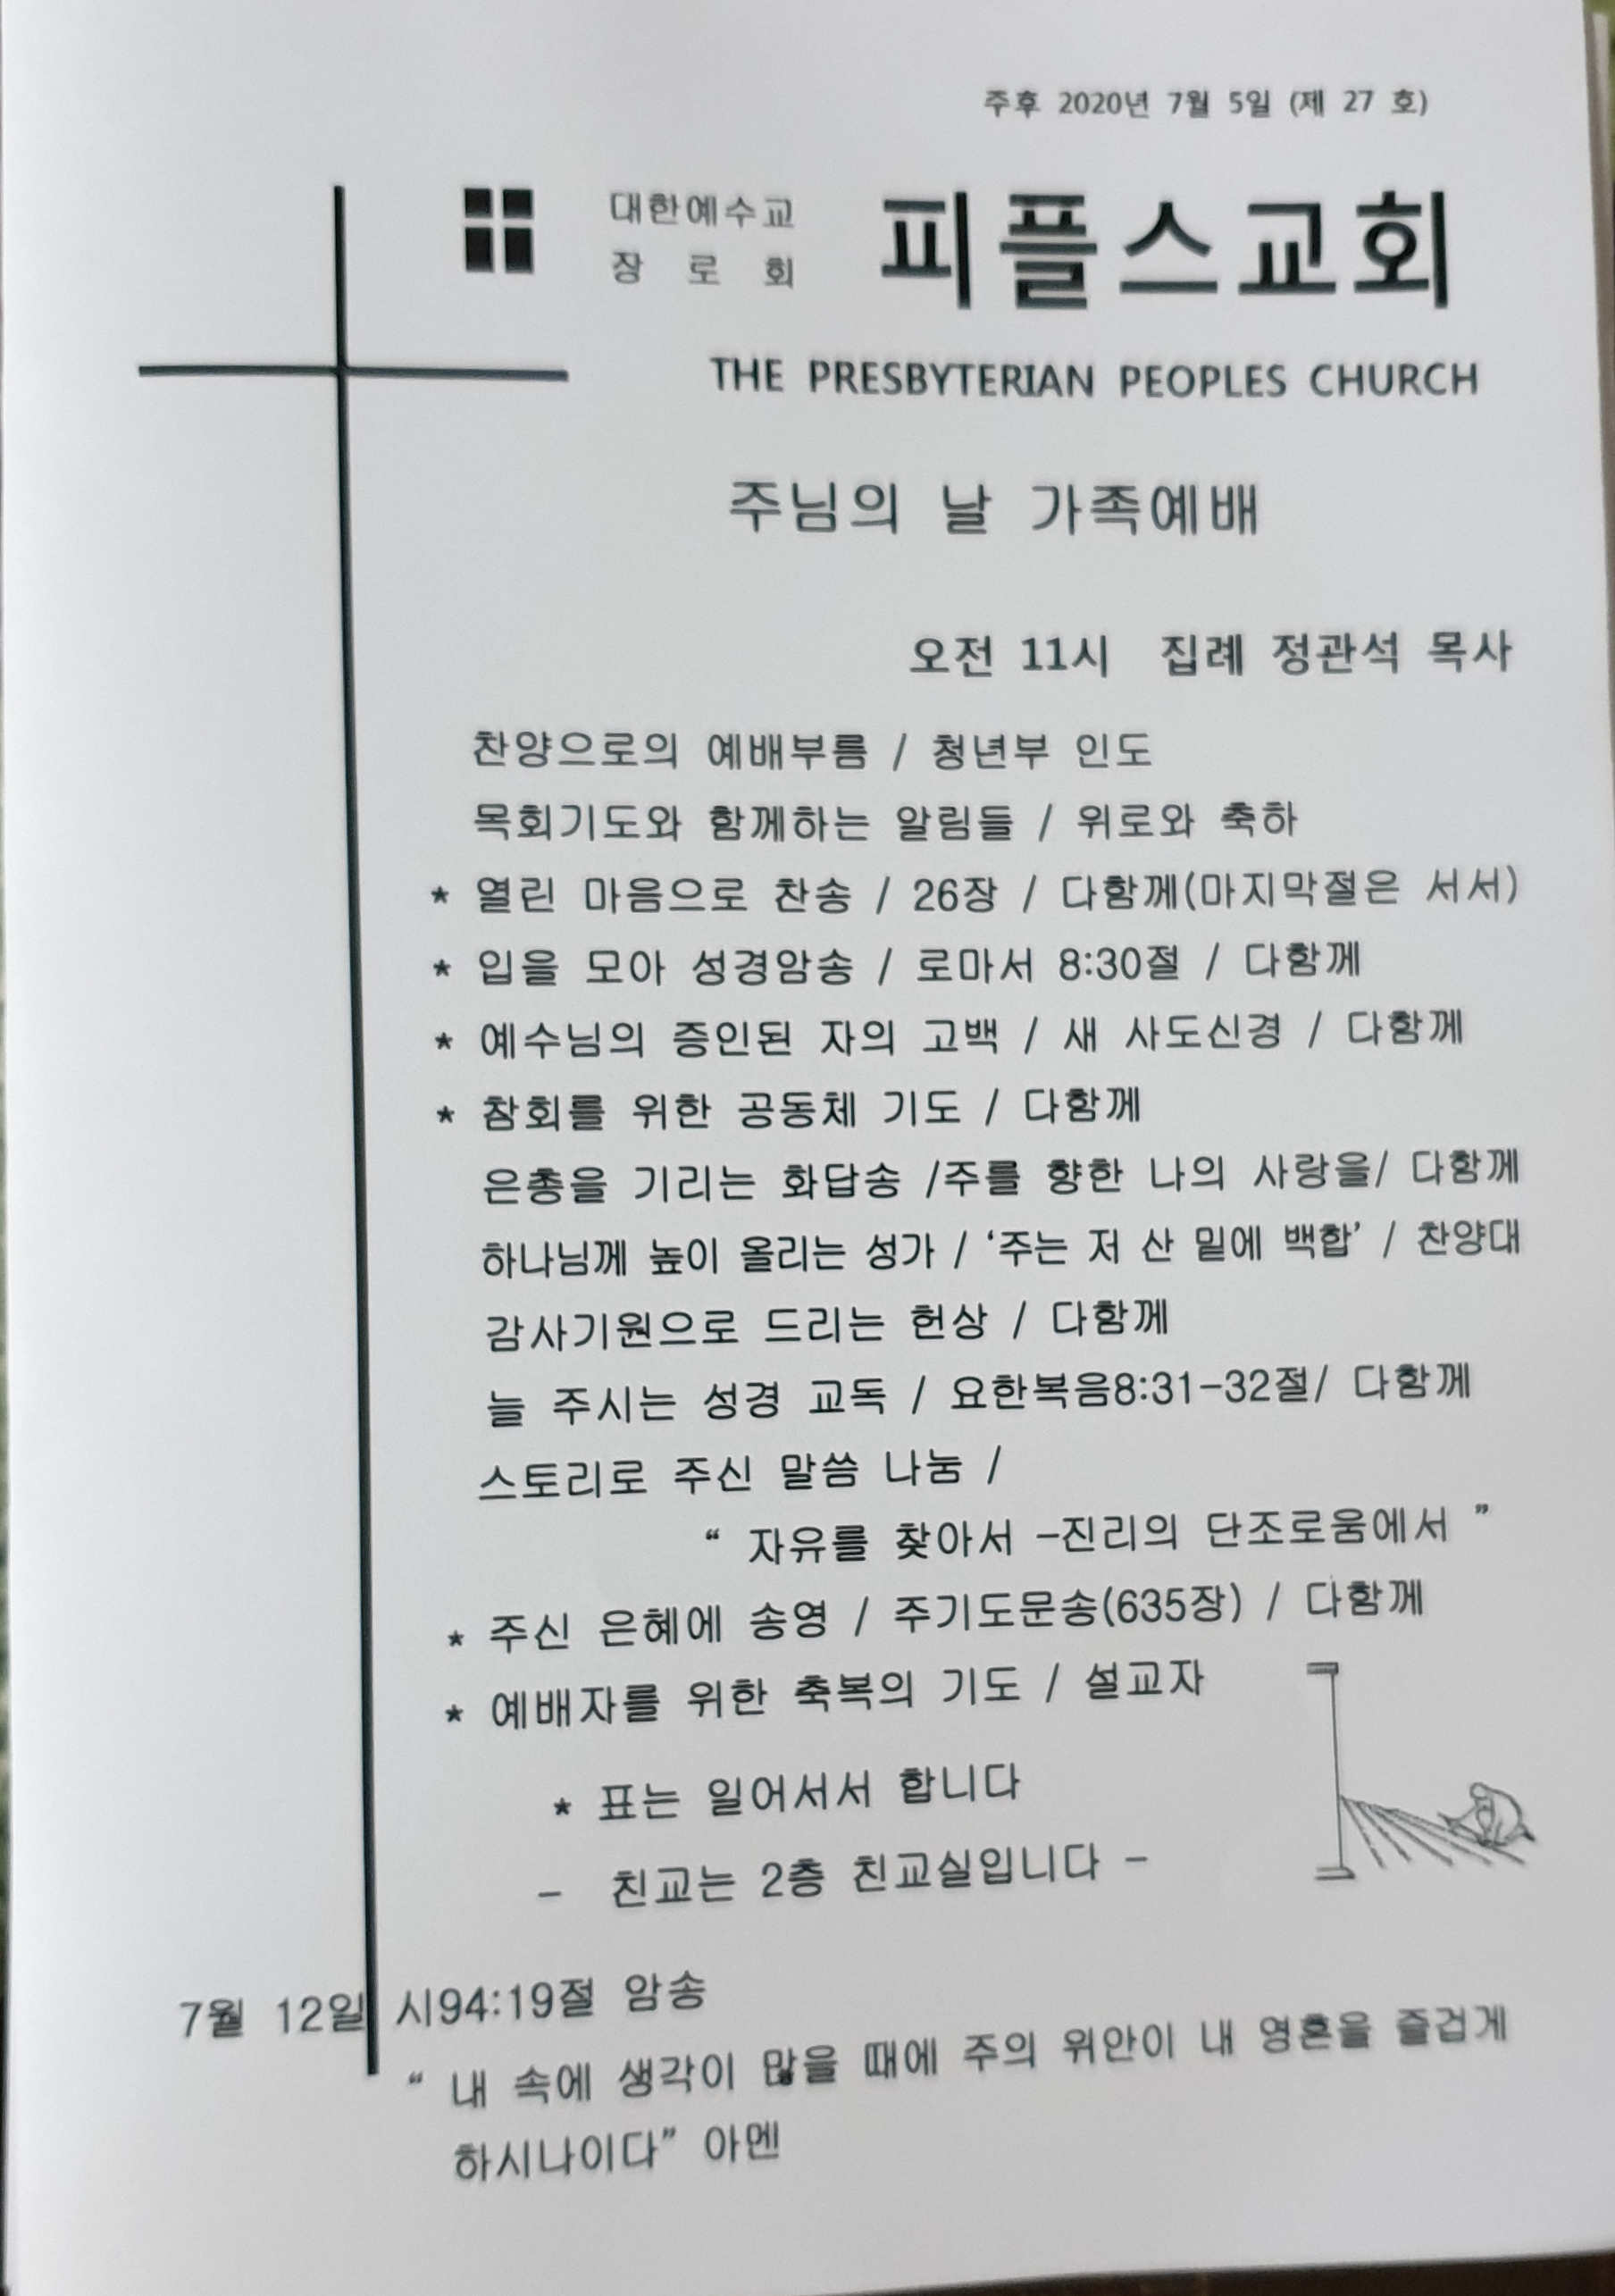 주후 2020년 7월 5일 (제 27 호)
대한예수교
장 로 회
피플스교회
THE PRESBYTERIAN PEOPLES CHURCH
주님의 날 가족예배
오전 11시 집례 정관석 목사
찬양으로의 예배부름 / 청년부 인도
목회기도와 함께하는 알림들 / 위로와 축하
* 열린 마음으로 찬송 / 26장 / 다함께(마지막절은 서서)
* 입을 모아 성경암송 / 로마서 8:30절 / 다함께
* 예수님의 증인된 자의 고백 / 새 사도신경 / 다함께
* 참회를 위한 공동체 기도 / 다함께
은총을 기리는 화답송 /주를 향한 나의 사랑을/ 다함께
하나님께 높이 올리는 성가 / ‘주는 저 산 밑에 백합’ / 찬양대
감사기원으로 드리는 헌상 / 다함께
늘 주시는 성경 교독 / 요한복음8:31-32절/ 다함께
스토리로 주신 말씀 나눔 /
“ 자유를 찾아서 -진리의 단조로움에서 ”
* 주신 은혜에 송영 / 주기도문송(635장) / 다함께
* 예배자를 위한 축복의 기도 / 설교자
* 표는 일어서서 합니다
- 친교는 2층 친교실입니다 -
7월 12일 시94:19절 암송
“ 내 속에 생각이 많을 때에 주의 위안이 내 영혼을 즐겁게
하시나이다” 아멘